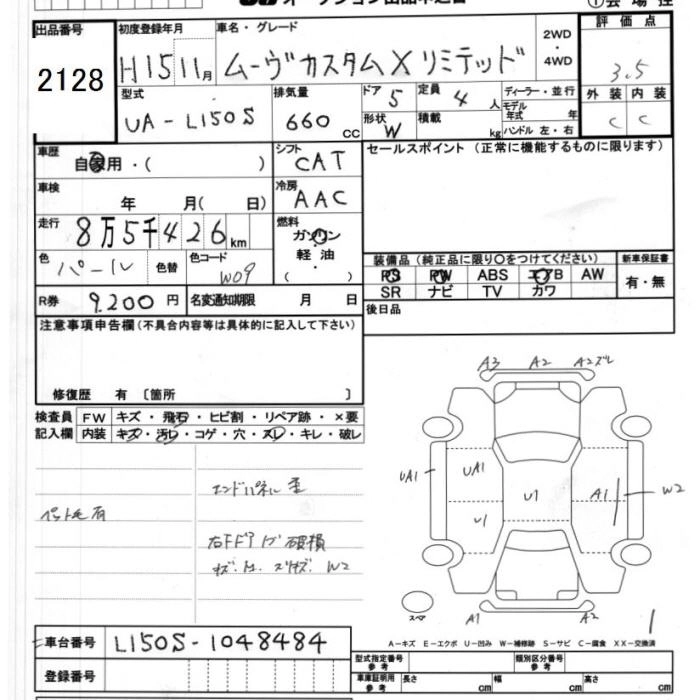 オークション出品申込書 ①会場控
出品番号 初度登録年月 車名・グレード 2WD ・ 4WD 評価点
2128 H15 11月 ムーヴカスタムX リミテッド 3.5
型式 排気量 ドア 5 定員 4人 ディーラー・並行 外装 内装
UA-L150S 660cc 形状 W 積載 kg モデル年式 年式 ハンドル 左・右 C C
車歴 自家用・( ) シフト CAT セールスポイント (正常に機能するものに限ります)
車検 年 月( 日) 冷房 AAC
走行 8万5千426km 燃料 ガソリン 軽油 ・ ( )
色 パール 色替 色コード W09 装備品 (純正品に限り○をつけてください) 新車保証書
PS PW ABS エアB AW 有・無
SR ナビ TV カワ
R券 9,200円 名変通知期限 月 日 後日品
注意事項申告欄 (不具合内容等は具体的に記入して下さい)
修復歴 有 〔箇所 〕
検査員 FW キズ・飛石・ヒビ割・リペア跡・×要
記入欄 内装 キズ・汚レ・コゲ・穴・スレ・キレ・破レ
A3 A2 A2ズレ
エンドパネル 歪
ペット毛有
UA1 UA1 U1 U1 A1 W2
右Fドア 破損
W2
スペア A1 A2 1
A－キズ E－エクボ U－凹み W－補修跡 S－サビ C－腐食 XX－交換済
車台番号 L150S-1048484
登録番号
型式指定番号 参考 類別区分番号 参考
車庫証明用 参考 長さ cm 幅 cm 高さ cm